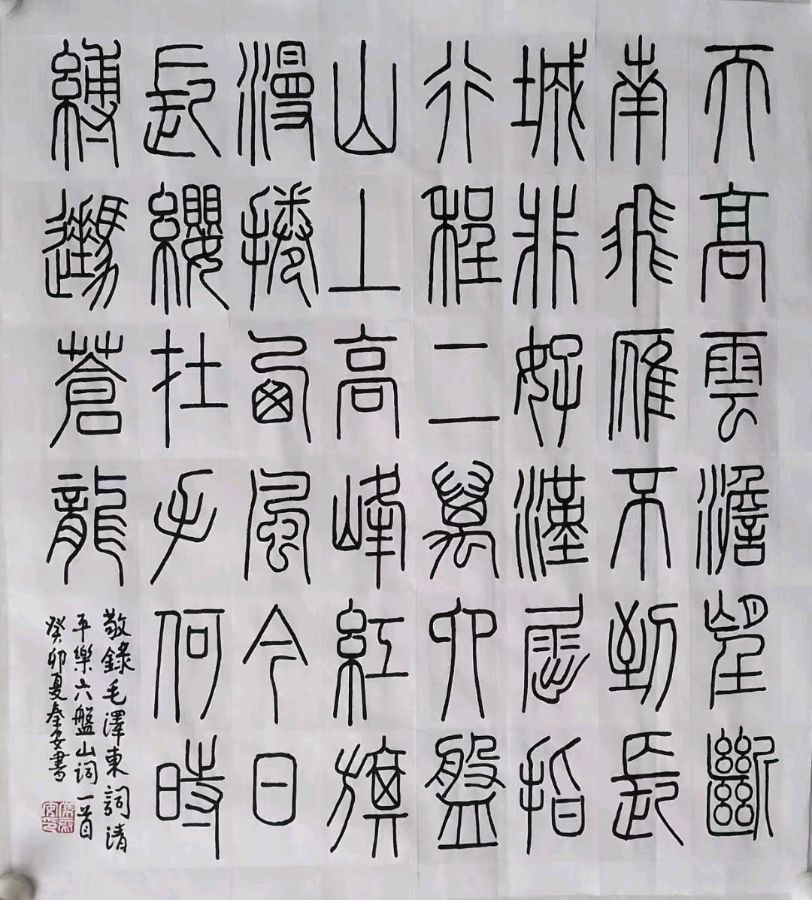 天高雲澹望斷
南飛雁不到長
城非好漢屈指
行程二萬六盤
山上高峰紅旗
漫捲西風今日
長纓在手何時
縛蒼龍
敬錄毛澤東詞清
平樂六盤山詞一首
癸卯夏秦安書